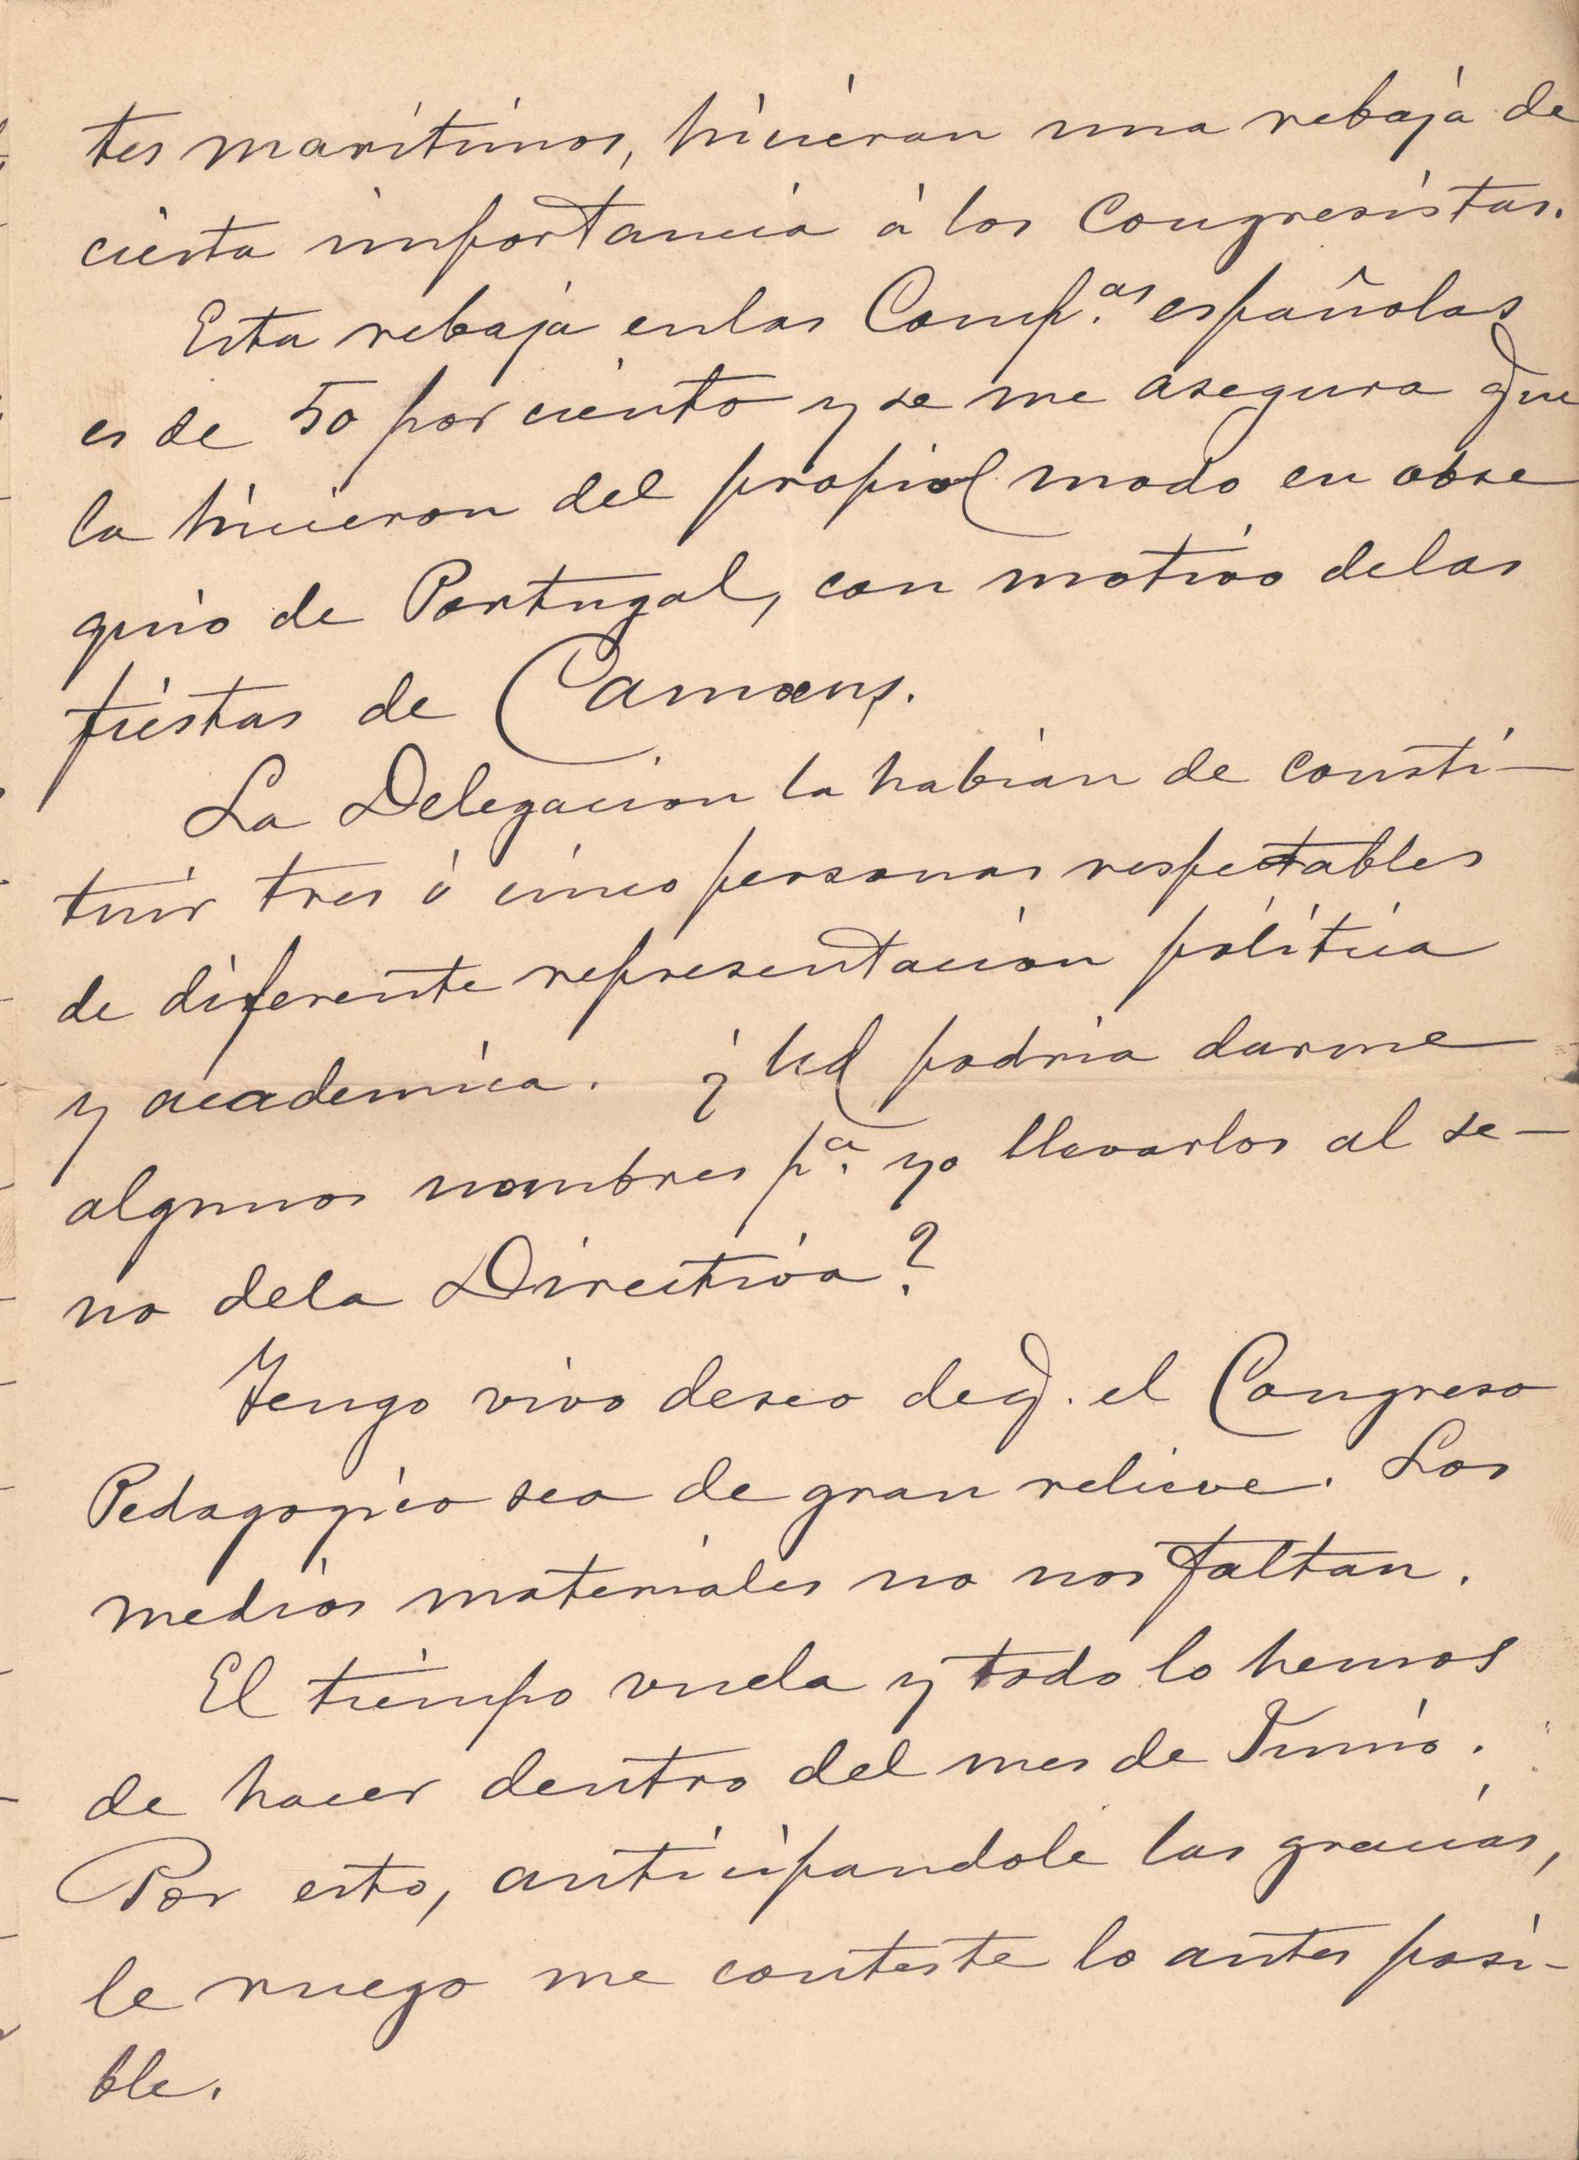 tes maritimos, hicieran una rebaja de
cierta importancia á los Congresistas.
Esta rebaja en las Comp.as españolas
es de 50 por ciento y se me asegura que
la hicieron del propio modo en obse
quio de Portugal, con motivo de las
fiestas de Camoens.
La Delegacion la habian de consti-
tuir tres ó cinco personas respetables
de diferente representacion politica
y academica. ¿Ud podria darme
algunos nombres p.a yo llevarlos al se-
no de la Directiva?
Tengo vivo deseo de q. el Congreso
Pedagogico sea de gran relieve. Los
medios materiales no nos faltan.
El tiempo vuela y todo lo hemos
de hacer dentro del mes de Junio.
Por esto, anticipandole las gracias,
le ruego me conteste lo antes posi-
ble.